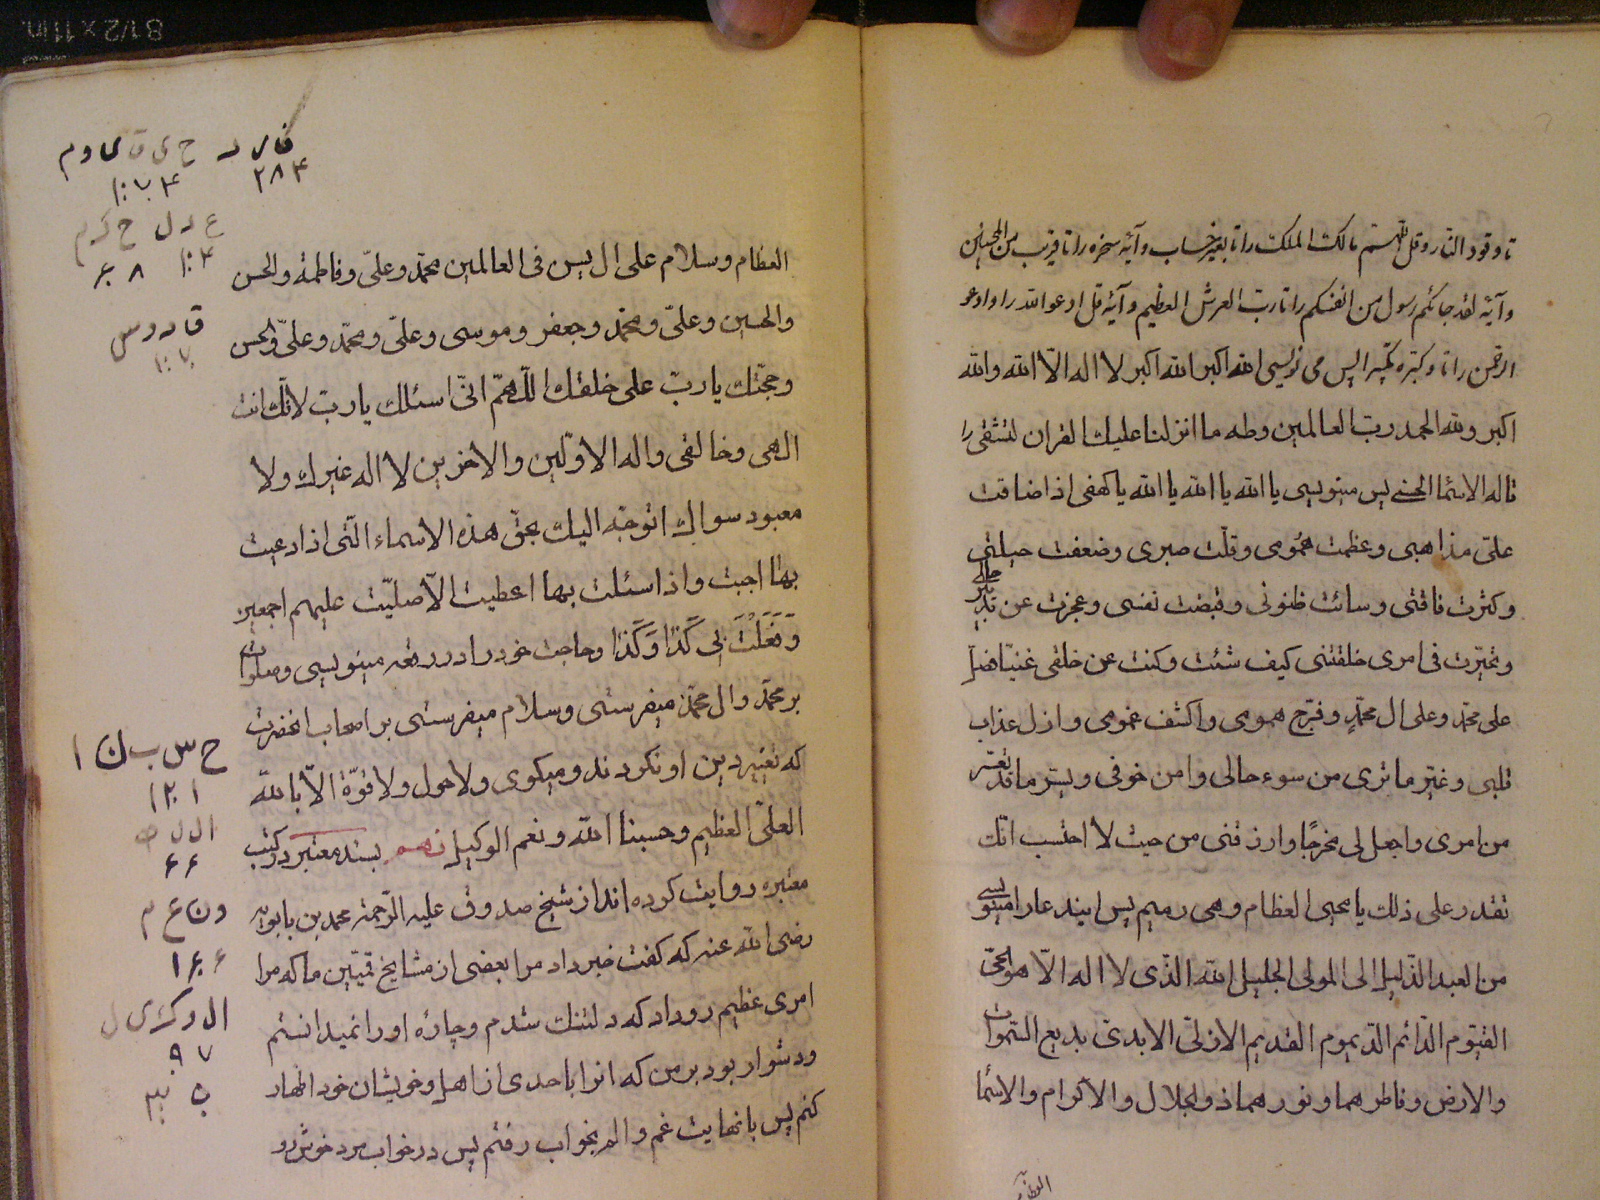 تا وقود النار و قل اللهم مالك الملك را تا بغیر حساب و آیه سخره را تا قریب من المحسنین
و آیه لقد جائکم رسول من انفسکم را تا رب العرش العظیم و آیه قل ادعوا الله را او ادعو
الرحمن را تا و کبره تکبیرا پس می نویسی الله اکبر الله اکبر لا اله الّا الله والله
اکبر ولله الحمد رب العالمین وطه ما انزلنا علیك القران لتشقی را
تا له الاسما الحسنی پس مینویسی یا الله یا الله یا الله یا کهفی اذا ضاقت
علیّ مذاهبی وعظمت همومی وقلّت صبری وضعفت حیلتی
وکثرت فاقتی وسائت ظنونی وقبضت نفسی وعجزت عن تدبیر حالی
وتحیّرت فی امری خلقتنی کیف شئت وکنت عن خلقی غنیّا فصل
علی محمّد وعلی ال محمّد وفرّج همومی واکشف غمومی وازل عذاب
قلبی وغیّر ما تری من سوء حالی وامن خوفی ویسّر ما قد تعسّر
من امری واجعل لی مخرجًا وارزقنی من حیث لا احتسب انّك
تقدر علی ذلك یا محیی العظام وهی رمیم پس ایندعا را مینویسی
من العبد الذّلیل الی المولی الجلیل الله الذّی لا اله الّا هو الحیّ
القیّوم الدّائم الدّیموم القدیم الازلیّ الابدیّ بدیع السّموات
والارض وفاطرهما ونورهما ذوالجلال والاکرام والاسما
العظام
العظام وسلام علی ال یس فی العالمین محمّد وعلیّ وفاطمة والحسن
والحسین وعلیّ ومحمّد وجعفر وموسی وعلیّ ومحمّد وعلیّ والحسن
وحجّتك یا ربّ علی خلقك اللّهمّ انّی اسئلك یا ربّ لانّك انت
الهی وخالقی واله الاوّلین والاخرین لا اله غیرك ولا
معبود سواك اتوجّه الیك بحقّ هذه الاسماء الّتی اذا دعیت
بها اجبت واذا سئلت بها اعطیت الّا صلّیت علیهم اجمعین
وَفَعَلْتَ بی کَذا وَکَذا وحاجت خود را در رقعه مینویسی وصلوات
بر محمّد وال محمّد میفرستی وسلام میفرستی بر اصحاب انحضرت
که تغییر دین او نکردند و میکوی ولا حول ولا قوّة الّا بالله
العلیّ العظیم وحسبنا الله ونعم الوکیل نهم بسند معتبر در کتب
معتبره روایت کرده اند از شیخ صدوق علیه الرّحمة محمد بن بابویه
رضی الله عنه که کفت خبر داد مرا بعضی از مشایخ قمیّین ما که مرا
امری عظیم رو داد که دلتنك شدم و چاره او را نمیدانستم
و دشوار بود بر من که انرا باحدی از اهل و خویشان خود اظهار
کنم پس با نهایت غم و الم بخواب رفتم پس در خواب مرد خوش رو
ق ا د ر ح ی ق ی و م
۲۸۴
ع د ل ح ک م
ح س ب ن ا
۱۲۱
ال ل ه
۶۶
و ن ع م
۱۶۶
ال و ک ی ل
۹۷